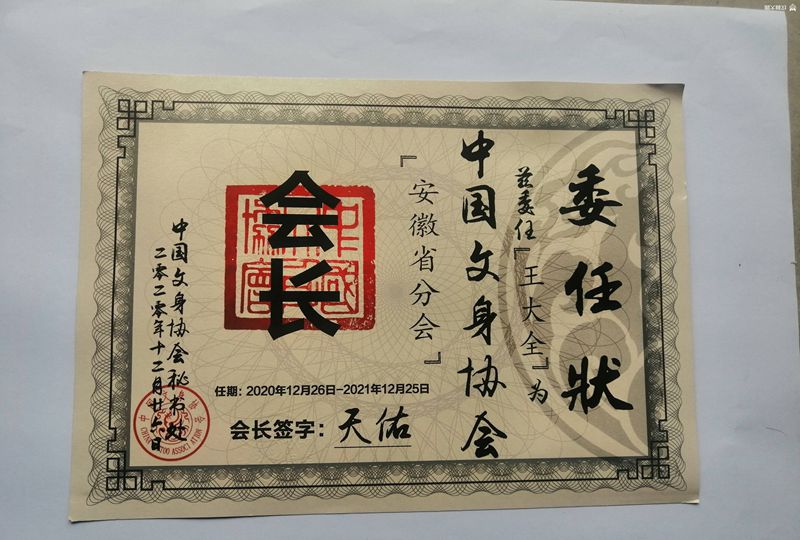 委任狀
兹委任『王大全』为
中国文身协会
『安徽省分会』
会长
任期：2020年12月26日-2021年12月25日
会长签字：天佑
中国文身协会秘书处
二零二零年十二月廿六日